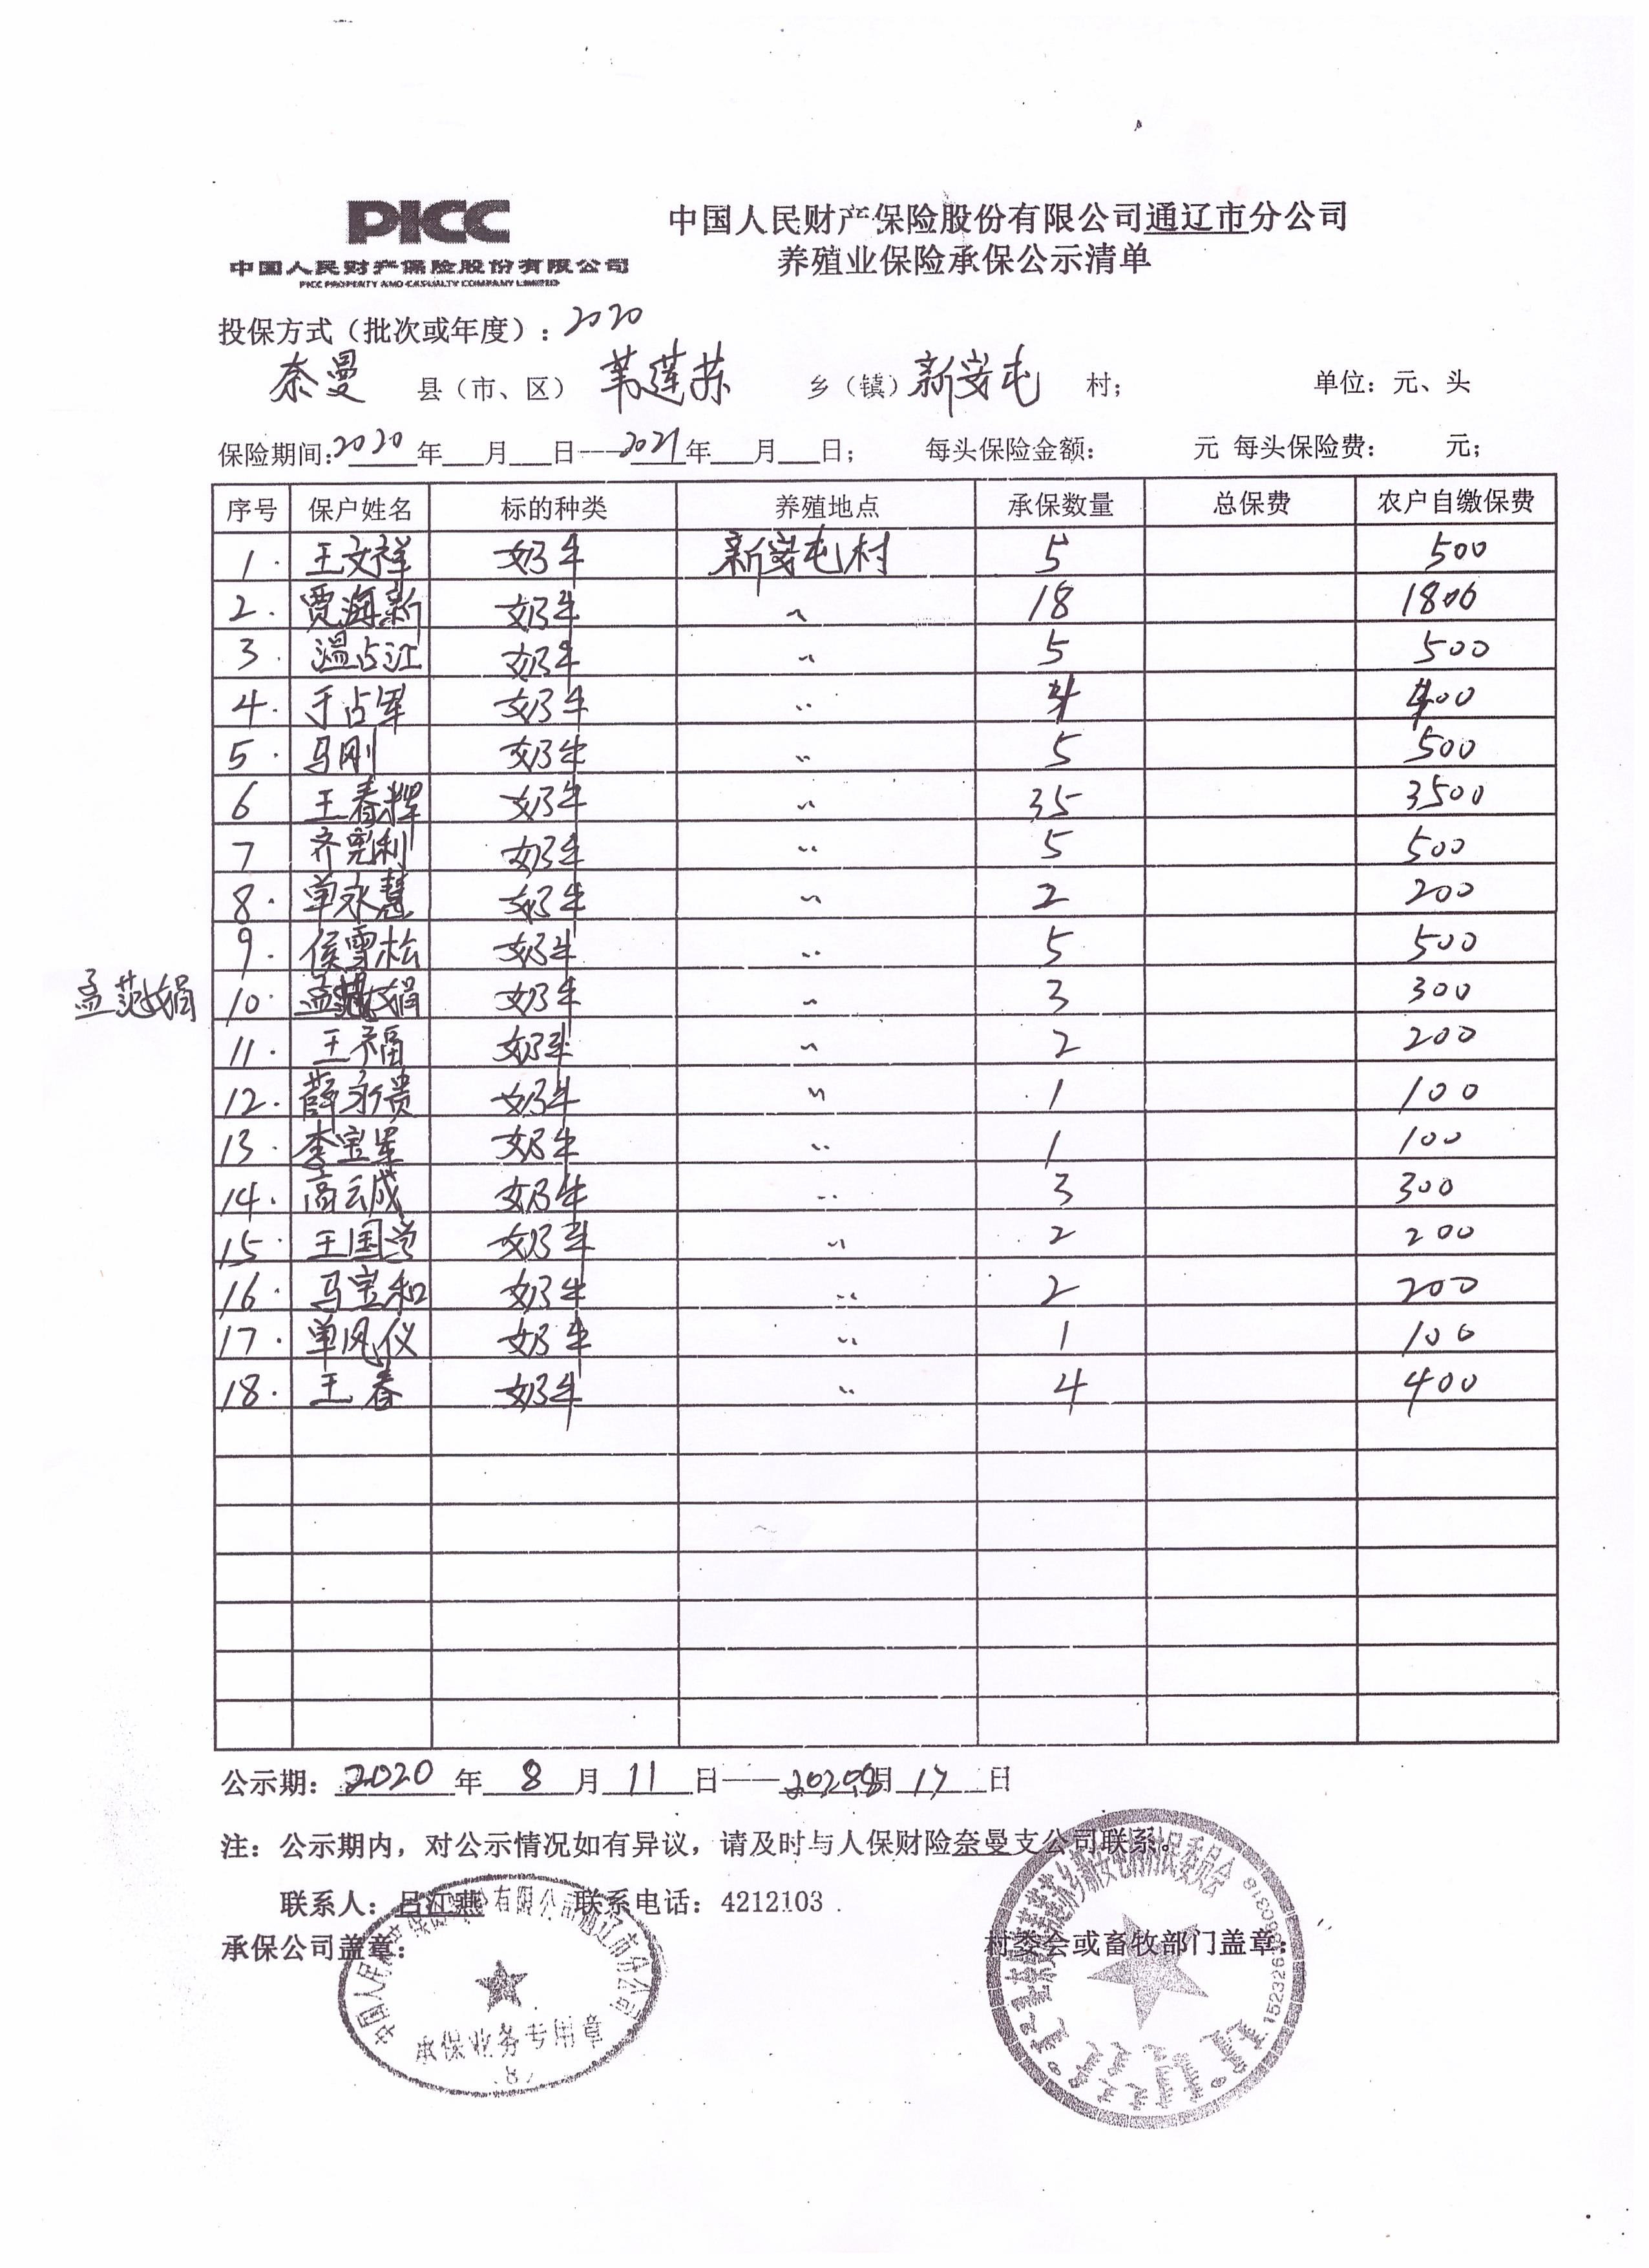 PICC
中国人民财产保险股份有限公司
PICC PROPERTY AND CASUALTY COMPANY LIMITED
中国人民财产保险股份有限公司通辽市分公司
养殖业保险承保公示清单
投保方式（批次或年度）：2020
奈曼 县（市、区） 苇莲苏 乡（镇） 新安屯 村； 单位：元、头
保险期间：2020年 月 日—2021年 月 日； 每头保险金额： 元 每头保险费： 元；
序号 保户姓名 标的种类 养殖地点 承保数量 总保费 农户自缴保费
1. 王文祥 奶牛 新安屯村 5 500
2. 贾海新 奶牛 〃 18 1800
3. 温占江 奶牛 〃 5 500
4. 于占军 奶牛 〃 4 400
5. 马刚 奶牛 〃 5 500
6 王春辉 奶牛 〃 35 3500
7 齐宪利 奶牛 〃 5 500
8. 单永慧 奶牛 〃 2 200
9. 侯雪松 奶牛 〃 5 500
孟范娟 10. 奶牛 〃 3 300
11. 王福 奶牛 〃 2 200
12. 薛永贵 奶牛 〃 1 100
13. 李宝军 奶牛 〃 1 100
14. 高云成 奶牛 〃 3 300
15. 王国学 奶牛 〃 2 200
16. 马宝和 奶牛 〃 2 200
17. 单凤仪 奶牛 〃 1 100
18. 王春 奶牛 〃 4 400
公示期：2020年 8 月 11 日——2020.8月 17 日
注：公示期内，对公示情况如有异议，请及时与人保财险奈曼支公司联系。
联系人：吕江燕 联系电话：4212103
承保公司盖章： 村委会或畜牧部门盖章：
中国人民财产保险股份有限公司通辽市分公司
承保业务专用章